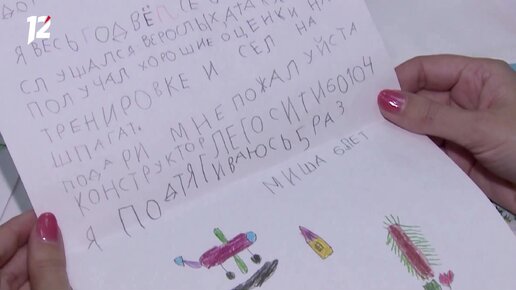 12
Я ВЕСЬ ГОД ВЁЛ СЕ
СЛУШАЛСЯ ВЗРОСЛЫХ А ТАК
ПОЛУЧАЛ ХОРОШИЕ ОЦЕНКИ НА
ТРЕНИРОВКЕ И СЕЛ НА
ШПАГАТ.
ПОДАРИ МНЕ ПОЖАЛУЙСТА
КОНСТРУКТОР ЛЕГО СИТИ 60104
Я ПОДТЯГИВАЮСЬ 5 РАЗ
МИША 6 ЛЕТ